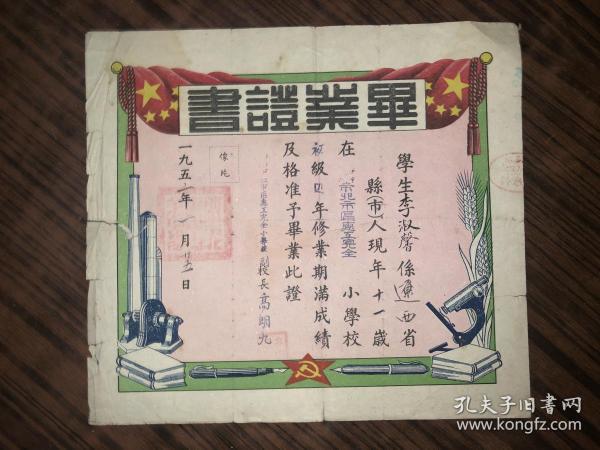 畢業證書
學生李淑馨係遼西省
縣(市)人現年十一歲
在 完全小學校
初級四年修業期滿成績
及格准予畢業此證
副校長高明九
像片
一九五 年一月 日
孔夫子旧书网
www.kongfz.com